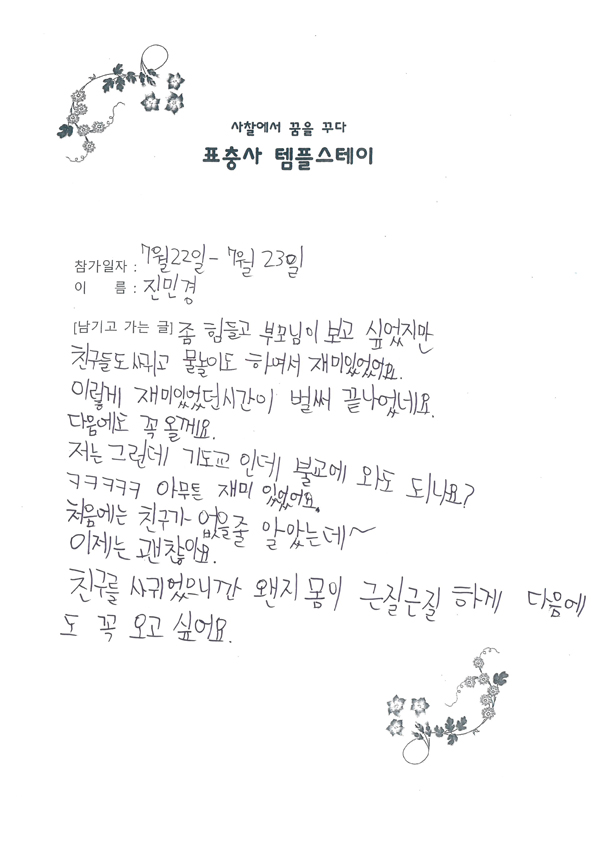 사찰에서 꿈을 꾸다
표충사 템플스테이
참가일자 : 7월22일 - 7월 23일
이 름 : 진민경
[남기고 가는 글] 좀 힘들고 부모님이 보고 싶었지만
친구들도 사귀고 물놀이도 하여서 재미있었어요.
이렇게 재미있었던시간이 벌써 끝나었네요.
다음에도 꼭 올께요.
저는 그런데 기도교 인데 불교에 와도 되나요?
ㅋㅋㅋㅋㅋ 아무튼 재미 있었어요.
처음에는 친구가 없을줄 알았는데~
이제는 괜찮아요.
친구를 사귀었으니깐 왠지 몸이 근질근질 하게 다음에
도 꼭 오고 싶어요.